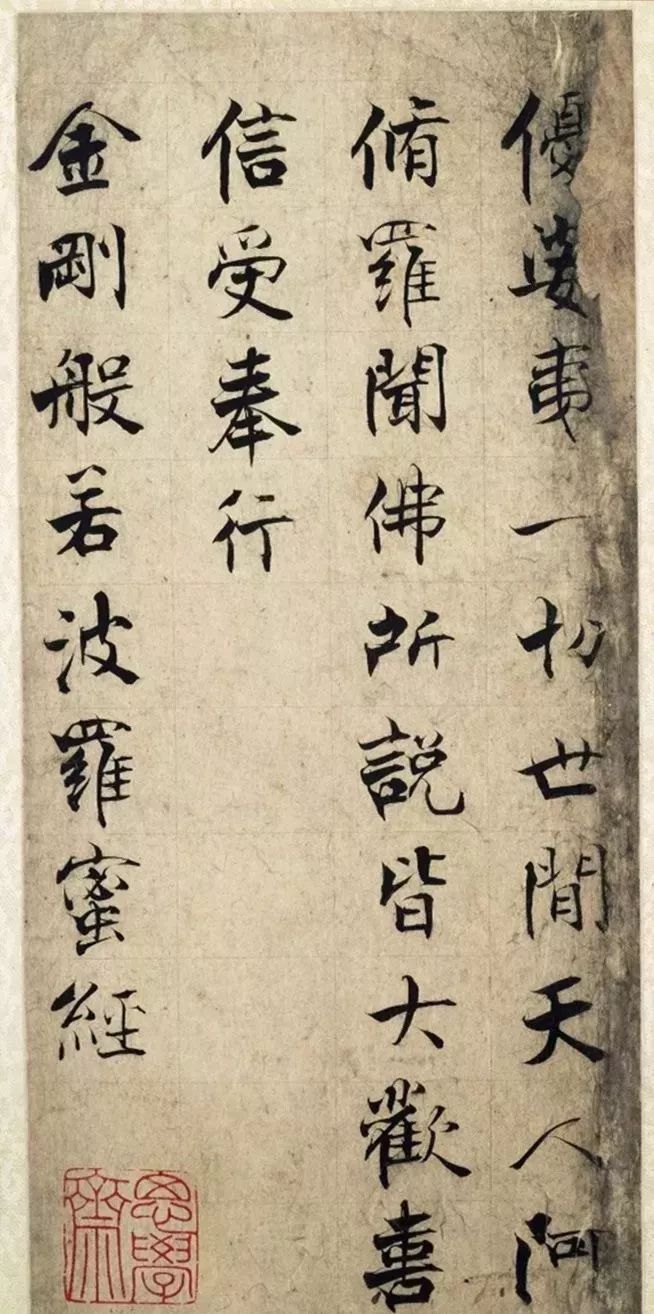 優婆夷一切世閒天人阿
脩羅聞佛所説皆大歡喜
信受奉行
金剛般若波羅蜜經
思學齋